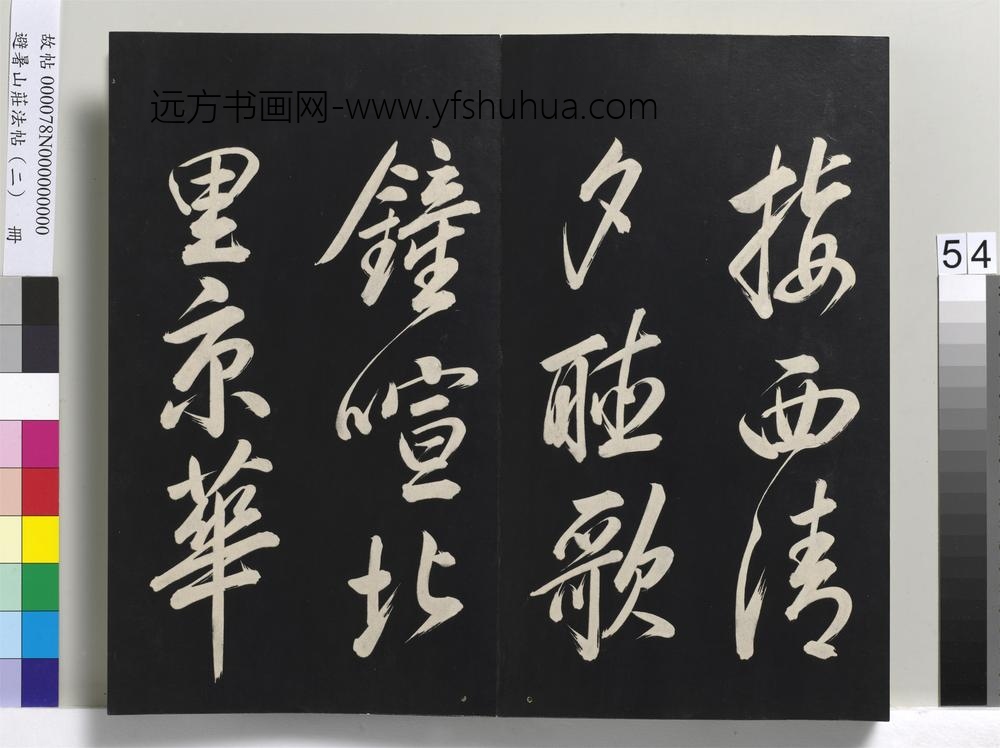 远方书画网-www.yfshuhua.com
接西清
夕聽歌
鐘喧北
里京華
故帖 000078N000000000
避暑山莊法帖（二） 冊
54